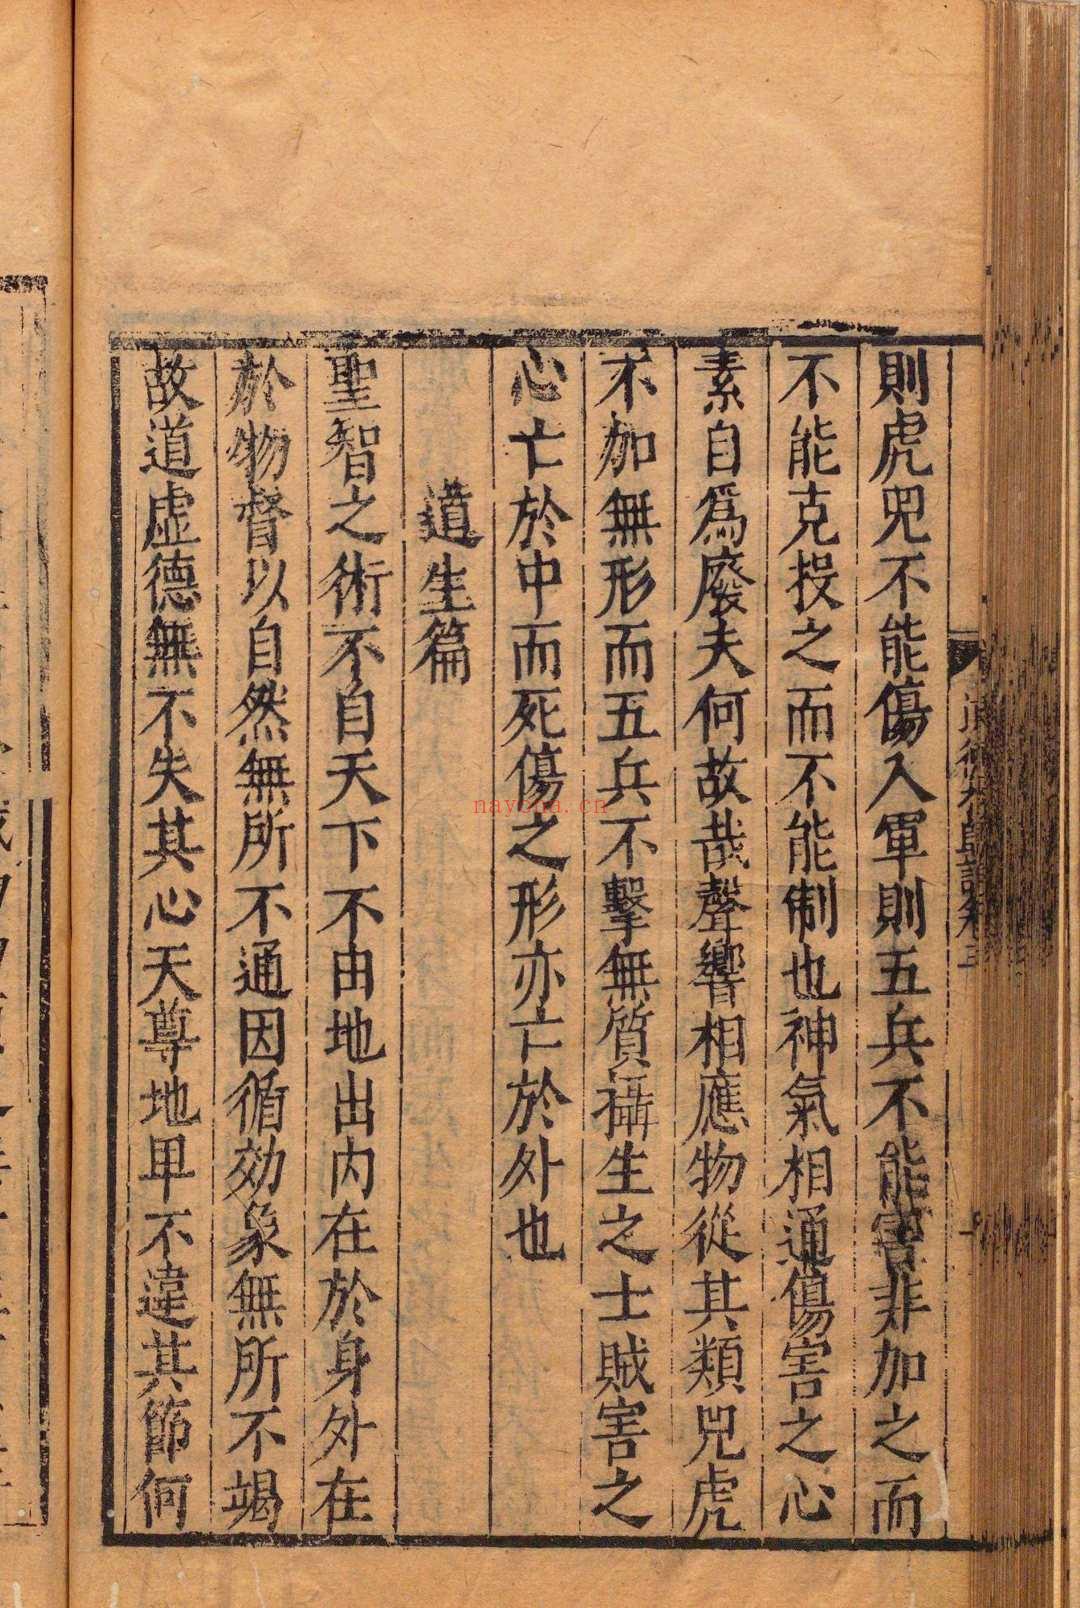 則虎兕不能傷入軍則五兵不能害非加之而
不能克投之而不能制也神氣相通傷害之心
素自爲廢夫何故哉聲響相應物從其類兕虎
不加無形而五兵不擊無質攝生之士賊害之
心亡於中而死傷之形亦亡於外也
道生篇
聖智之術不自天下不由地出内在於身外在
於物督以自然無所不通因循効象無所不竭
故道虛德無不失其心天尊地卑不違其節何
nayona.cn